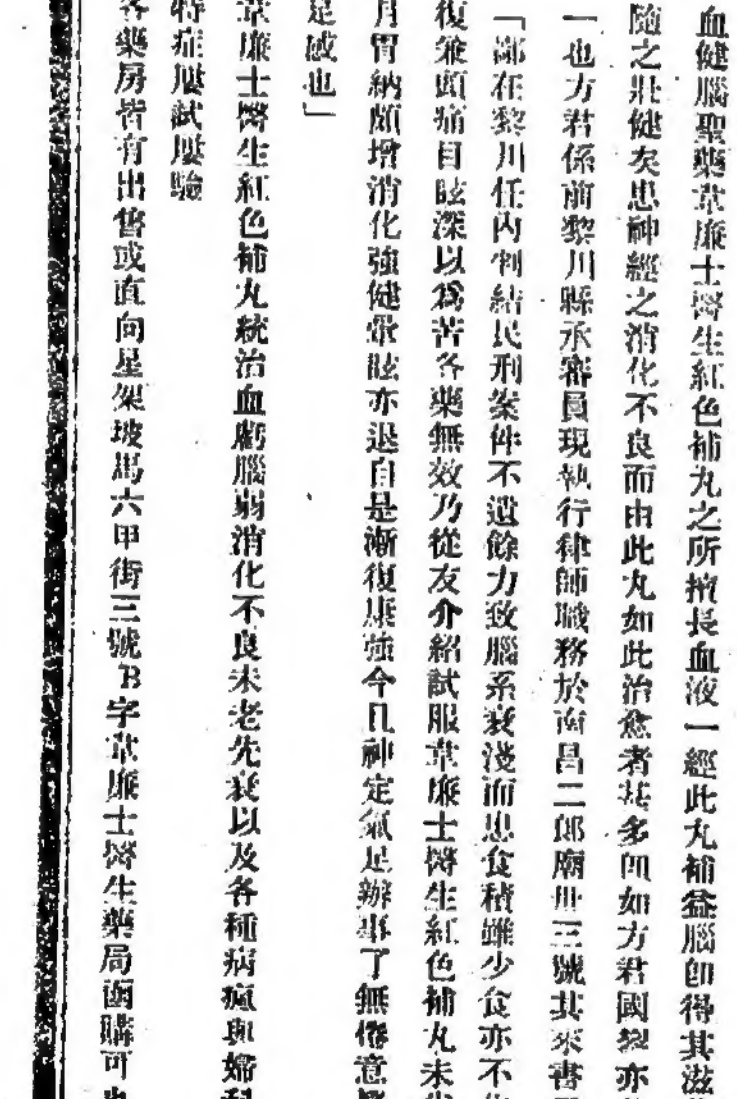 血健腦聖藥韋廉士醫生紅色補丸之所擅長血液一經此丸補益腦卽得其滋
隨之壯健矣患神經之消化不良而由此丸如此治愈者甚多卽如方君國黎亦
一也方君係前黎川縣承審員現執行律師職務於南昌二郎廟卅三號其來書
「鄙在黎川任內判結民刑案件不遺餘力致腦系衰淺而患食積雖少食亦不
復兼頭痛目眩深以爲苦各藥無效乃從友介紹試服韋廉士醫生紅色補丸未
月胃納頗增消化強健暈眩亦退自是漸復康強今且神定氣足辦事了無倦意
足感也」
韋廉士醫生紅色補丸統治血虧腦弱消化不良未老先衰以及各種病瘋與婦科
特症屢試屢驗
各藥房皆有出售或直向星架坡馬六甲街三號B字韋廉士醫生藥局函購可也